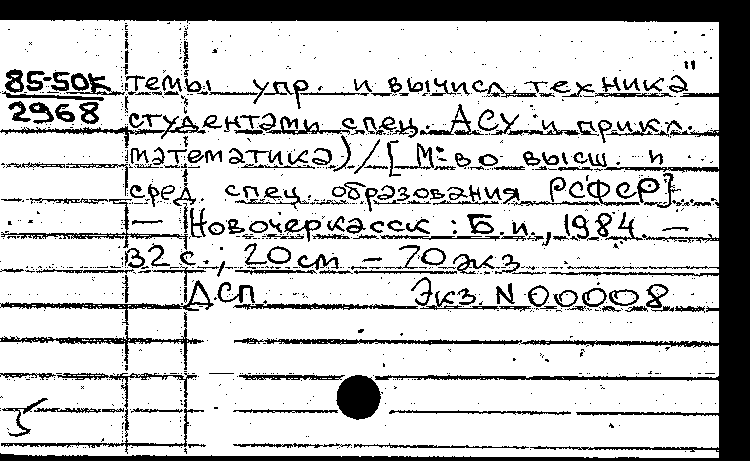 85-50К темы упр. и вычисл. техника"
2968 студентами спец. АСУ и прикл.
математика) / [М-во высш. и
сред. спец. образования РСФСР]
— Новочеркасск : Б.и., 1984. —
32 с.; 20 см. — 70 экз.
ДСП. Экз. N 00008
5